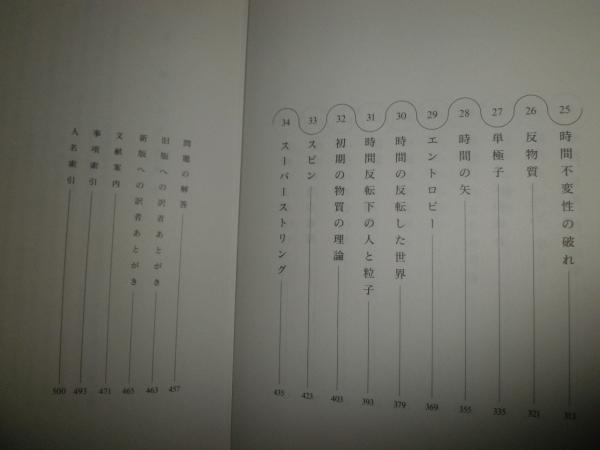 25 時間不変性の破れ 313
26 反物質 321
27 単極子 335
28 時間の矢 355
29 エントロピー 369
30 時間の反転した世界 379
31 時間反転下の人と粒子 393
32 初期の物質の理論 403
33 スピン 423
34 スーパーストリング 435
問題の解答 457
旧版への訳者あとがき 463
新版への訳者あとがき 465
文献案内 471
事項索引 493
人名索引 500